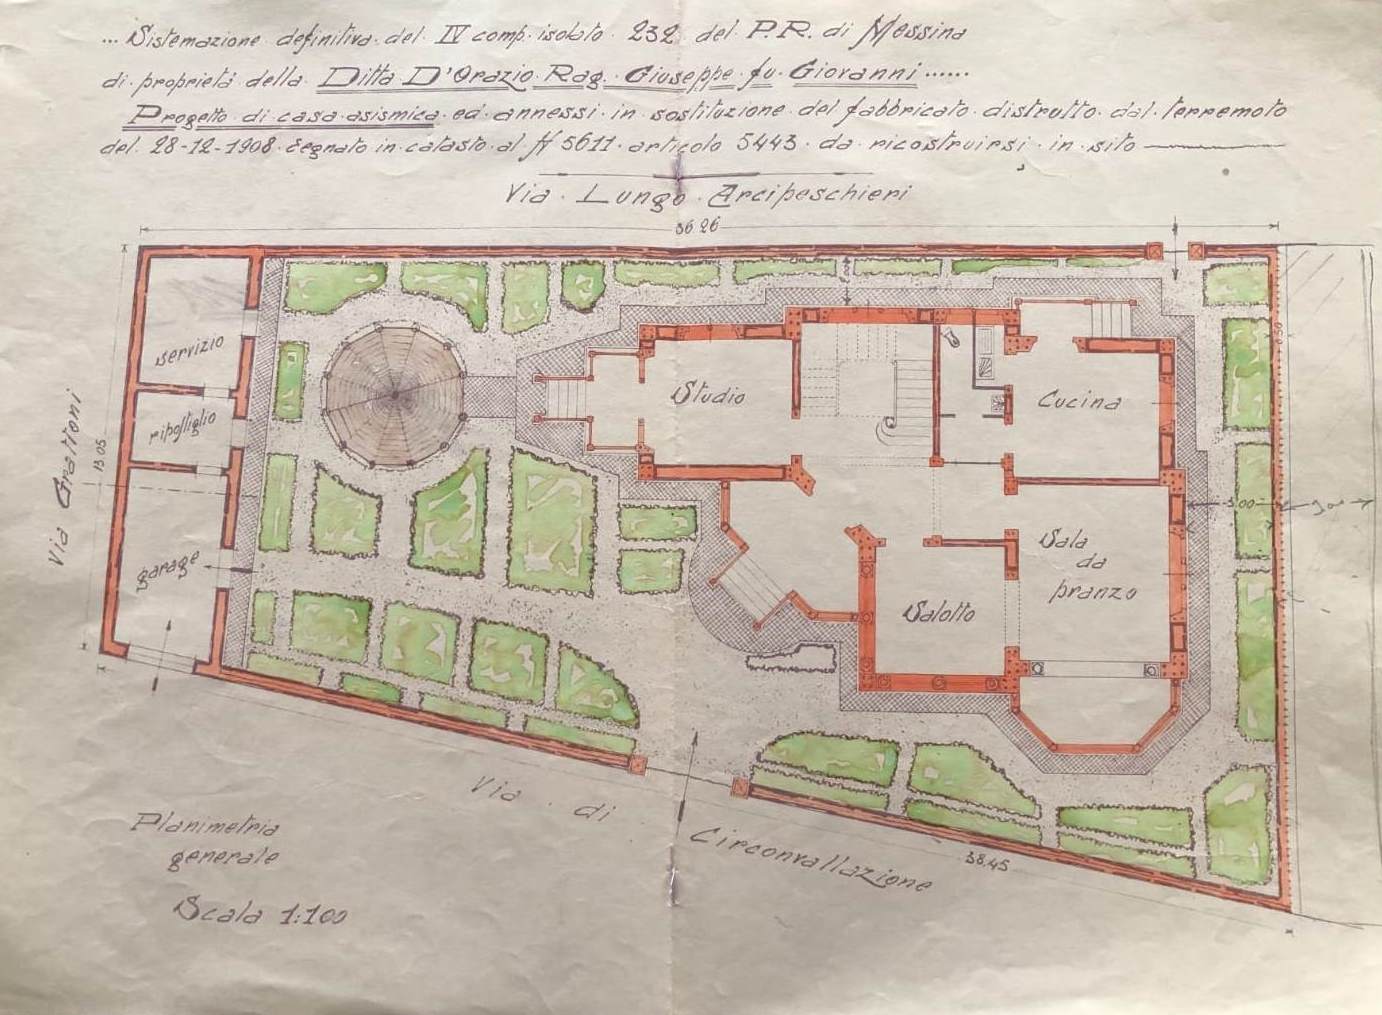 ... Sistemazione definitiva del IV comp. isolato 232 del P.R. di Messina
di proprietà della Ditta D'Orazio Rag. Giuseppe fu Giovanni ......
Progetto di casa asismica ed annessi in sostituzione del fabbricato distrutto dal terremoto
del 28-12-1908 segnato in catasto al N 5611 articolo 5443 da ricostruirsi in sito
Via Lungo Arcipeschieri
36 26
servizio
ripostiglio
garage
Via Grattoni
13.05
Studio
Cucina
Sala
da
pranzo
Salotto
5.00
Via di Circonvallazione
38,45
Planimetria
generale
Scala 1:100